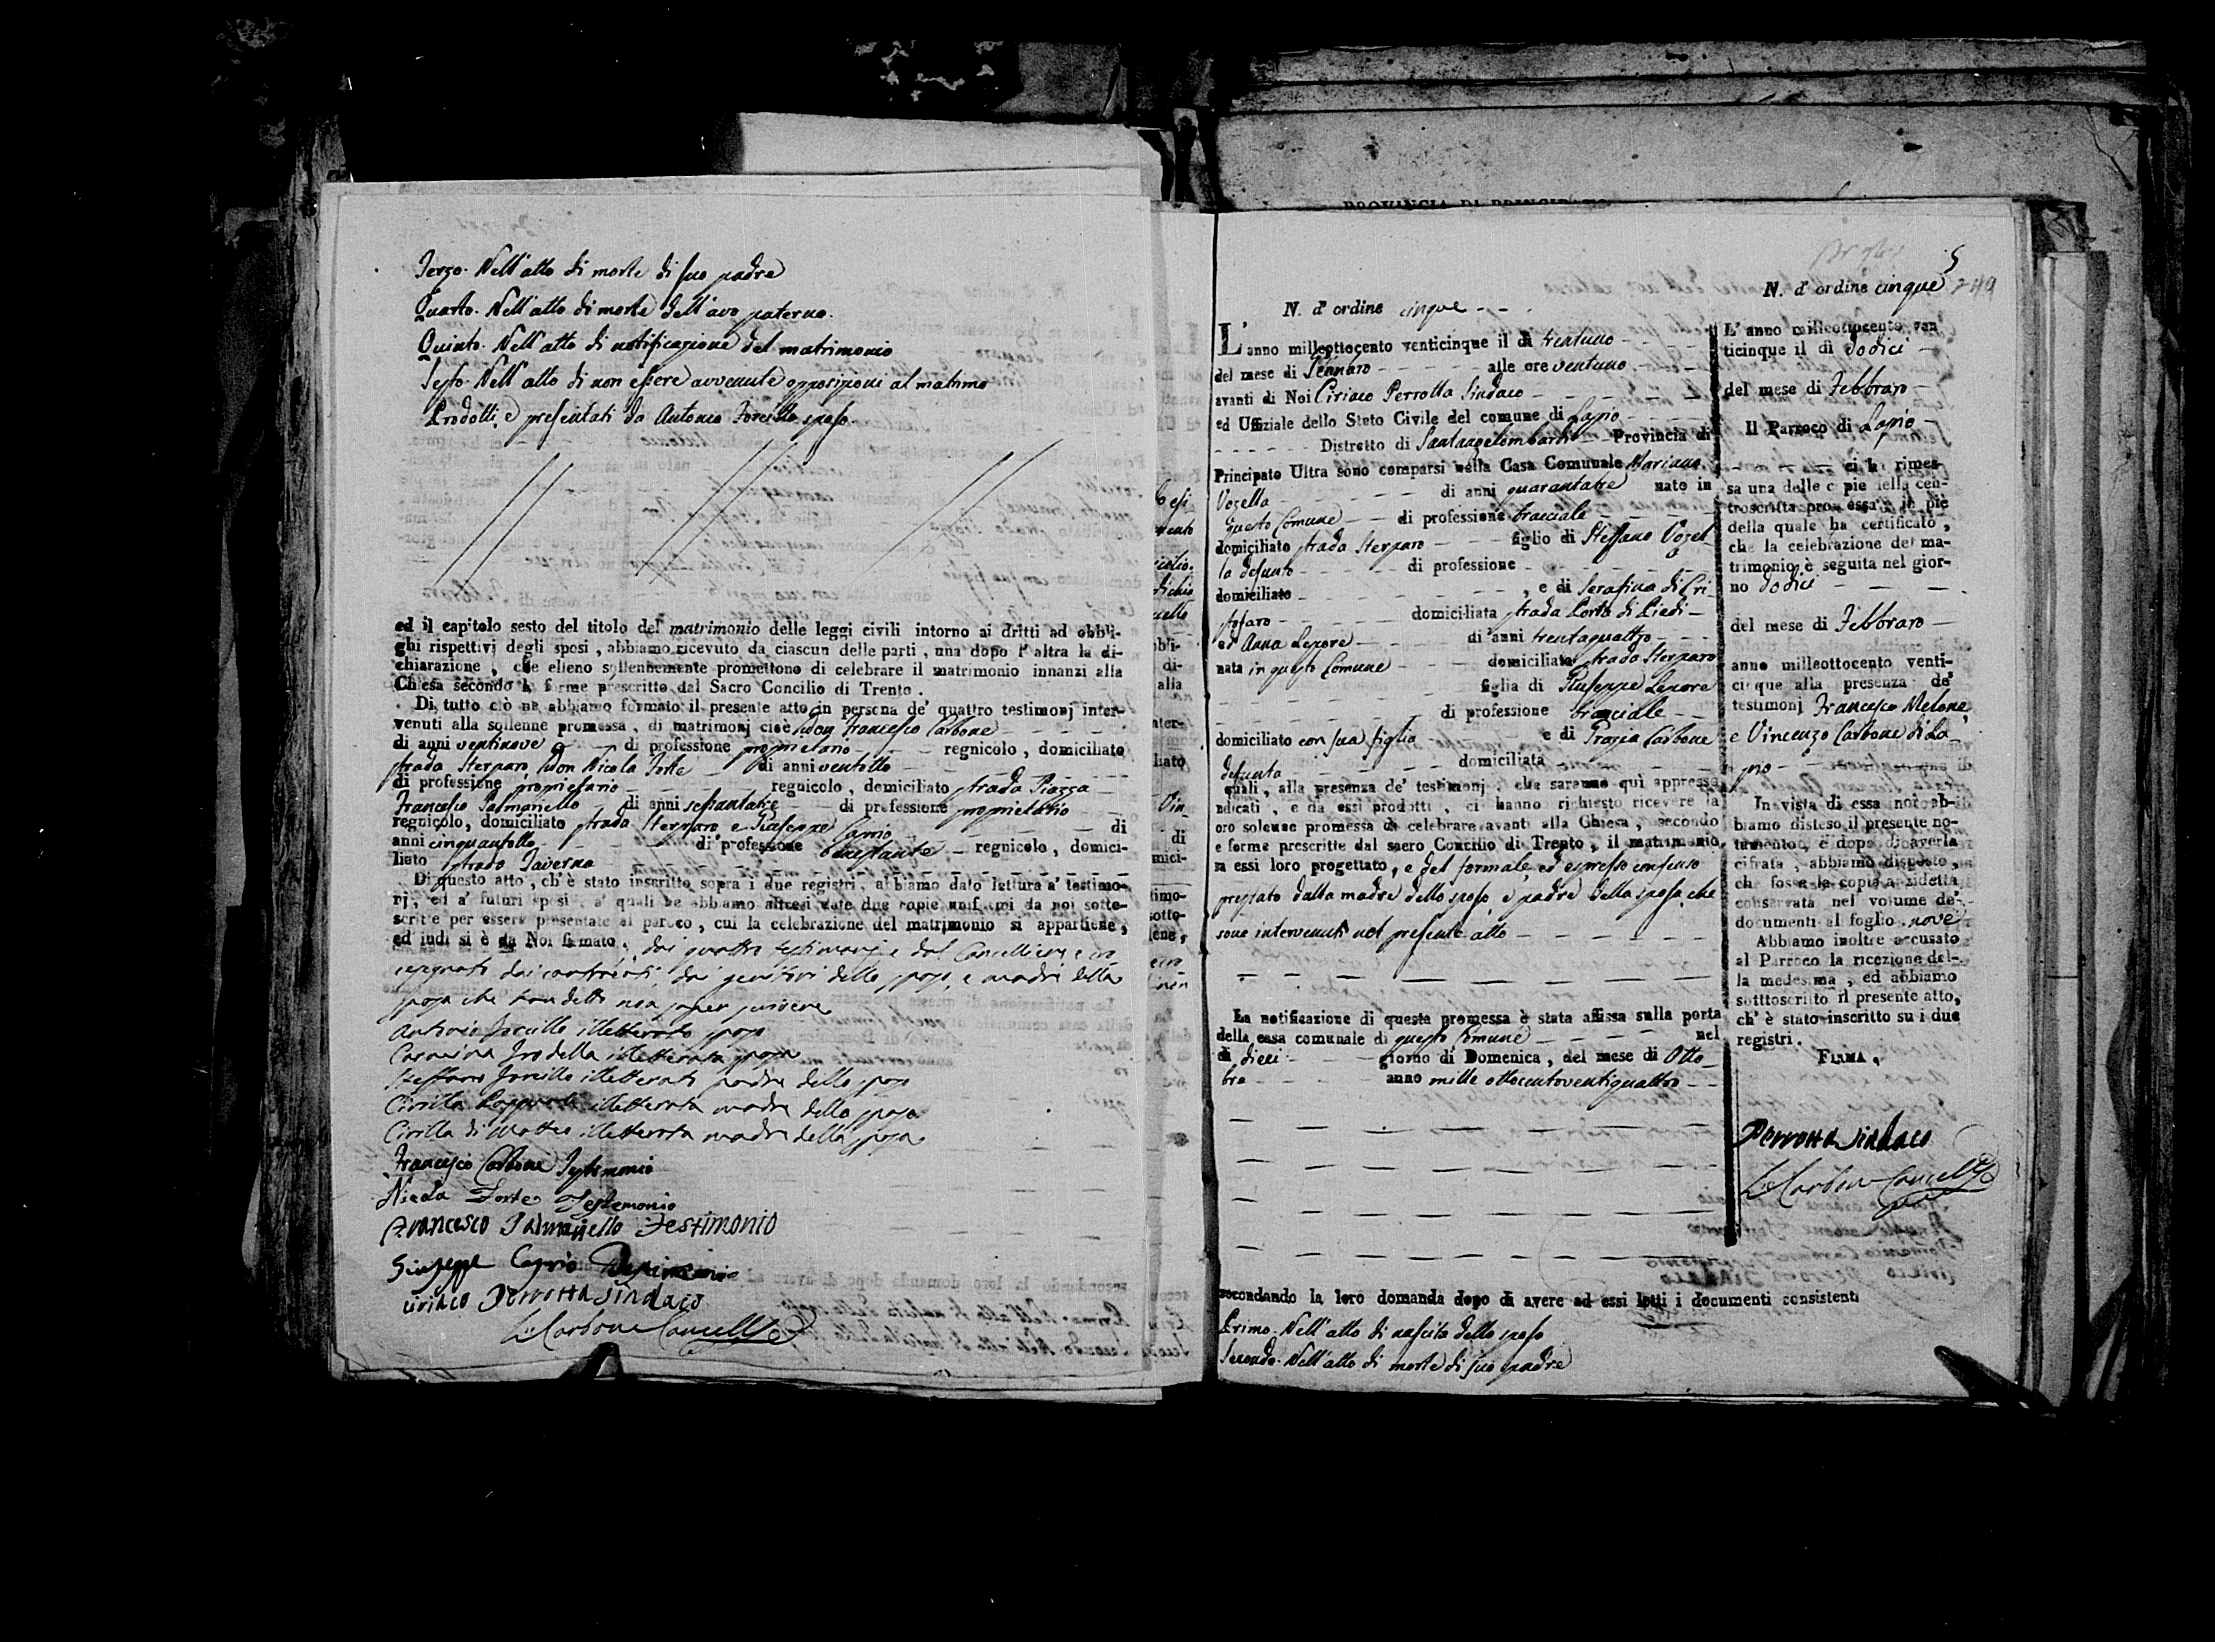 Terzo. Nell'atto di morte di suo padre
Quarto. Nell'atto di morte dell'avo paterno.
Quinto. Nell'atto di notificazione del matrimonio
Sesto. Nell'atto di non essere avvenute opposizioni al matrimo
Prodotti, e presentati da Antonio Forcillo sposo.
ed il capitolo sesto del titolo del matrimonio delle leggi civili intorno ai dritti ad obbli-
ghi rispettivi degli sposi, abbiamo ricevuto da ciascun delle parti, una dopo l'altra la di-
chiarazione, che elleno sollennemente promettono di celebrare il matrimonio innanzi alla
Chiesa secondo le forme prescritte dal Sacro Concilio di Trento.
Di tutto ciò ne abbiamo formato il presente atto in persona de' quattro testimonj inter-
venuti alla sollenne promessa, di matrimonj cioè Don Francesco Carbone
di anni ventinove di professione proprietario regnicolo, domiciliato
strada Sterparo, Don Nicola Forte di anni ventotto
di professione proprietario regnicolo, domiciliato strada Piazza
Francesco Palmariello di anni settantatre di professione proprietario
regnicolo, domiciliato strada Sterparo e Giuseppe Caprio di
anni cinquantotto di professione benestante regnicolo, domici-
liato strada Taverna
Di questo atto, ch'è stato inscritto sopra i due registri, abbiamo dato lettura a' testimo-
nj, ed a' futuri sposi, a' quali ne abbiamo altresì date due copie uniformi da noi sotto-
scritte per essere presentate al paroco, cui la celebrazione del matrimonio si appartiene,
ed indi si è da Noi firmato, dai quattro testimonj e dal Cancelliere e
segnato dai contraenti, dai genitori dello sposo, e madre della
sposa che han detto non saper scrivere
Antonio Forcillo illetterato sposo
illetterata sposa
Steffano Forcillo illetterato padre dello sposo
Cirilla illetterata madre dello sposo
Cirilla di Matteo illetterata madre della sposa
Francesco Carbone Testimonio
Nicola Forte Testemonio
Francesco Palmariello Testimonio
Giuseppe Caprio Testimonio
Ciriaco Perrotta Sindaco
Carbone Cancelle
5
N. d'ordine cinque 249
N. d'ordine cinque
L'anno milleottocento venticinque il dì trentuno
del mese di Gennaro alle ore ventuno
avanti di Noi Ciriaco Perrotta Sindaco
ed Uffiziale dello Stato Civile del comune di Lapio
Distretto di Santangelolombardi Provincia di
Principato Ultra sono comparsi nella Casa Comunale Mariano
Vozella di anni quarantatre nato in
questo Comune di professione bracciale
domiciliato strada Sterparo figlio di Steffano Vozel-
la defunto di professione
domiciliato , e di Serafina di Cri-
stofaro domiciliata strada Porta di Piedi
ed Anna Lepore di anni trentaquattro
nata in questo Comune domiciliata strada Sterparo
figlia di Giuseppe Lepore
di professione bracciale
domiciliato con sua figlia e di Grazia Carbone
defunta domiciliata
quali, alla presenza de' testimonj, che saranno quì appresso
ndicati, e da essi prodotti, ci hanno richiesto ricevere la
oro solenne promessa di celebrare avanti alla Chiesa, secondo
e forme prescritte dal sacro Concilio di Trento, il matrimonio
a essi loro progettato, e del formale, ed espresso consenso
prestato dalla madre dello sposo, e padre della sposa che
sono intervenuti nel presente atto
La notificazione di questa promessa è stata affissa sulla porta
della casa comunale di questo Comune nel
dì dieci giorno di Domenica, del mese di Otto-
bre anno mille ottocentoventiquattro
secondando la loro domanda dopo di avere ad essi letti i documenti consistenti
Primo. Nell'atto di nascita dello sposo
Secondo. Nell'atto di morte di suo padre
L'anno milleottocento ven
ticinque il dì dodici
del mese di Febbraro
Il Parroco di Lapio
ci ha rimes-
sa una delle copie della con-
troscritta promessa, in piè
della quale ha certificato,
che la celebrazione del ma-
trimonio è seguita nel gior-
no dodici
del mese di Febbraro
anno milleottocento venti-
cinque alla presenza de'
testimonj Francesco Melone,
e Vincenzo Carbone di La-
pio
In vista di essa noi ab-
biamo disteso il presente no-
tamento, e dopo di averla
cifrata, abbiamo disposto,
che fosse la copia anzidetta
conservata nel volume de'
documenti al foglio nove
Abbiamo inoltre accusato
al Parroco la ricezione del-
la medesima, ed abbiamo
sotttoscritto il presente atto,
ch'è stato inscritto su i due
registri.
FIRMA,
Perrotta Sindaco
Carbone Cancelle